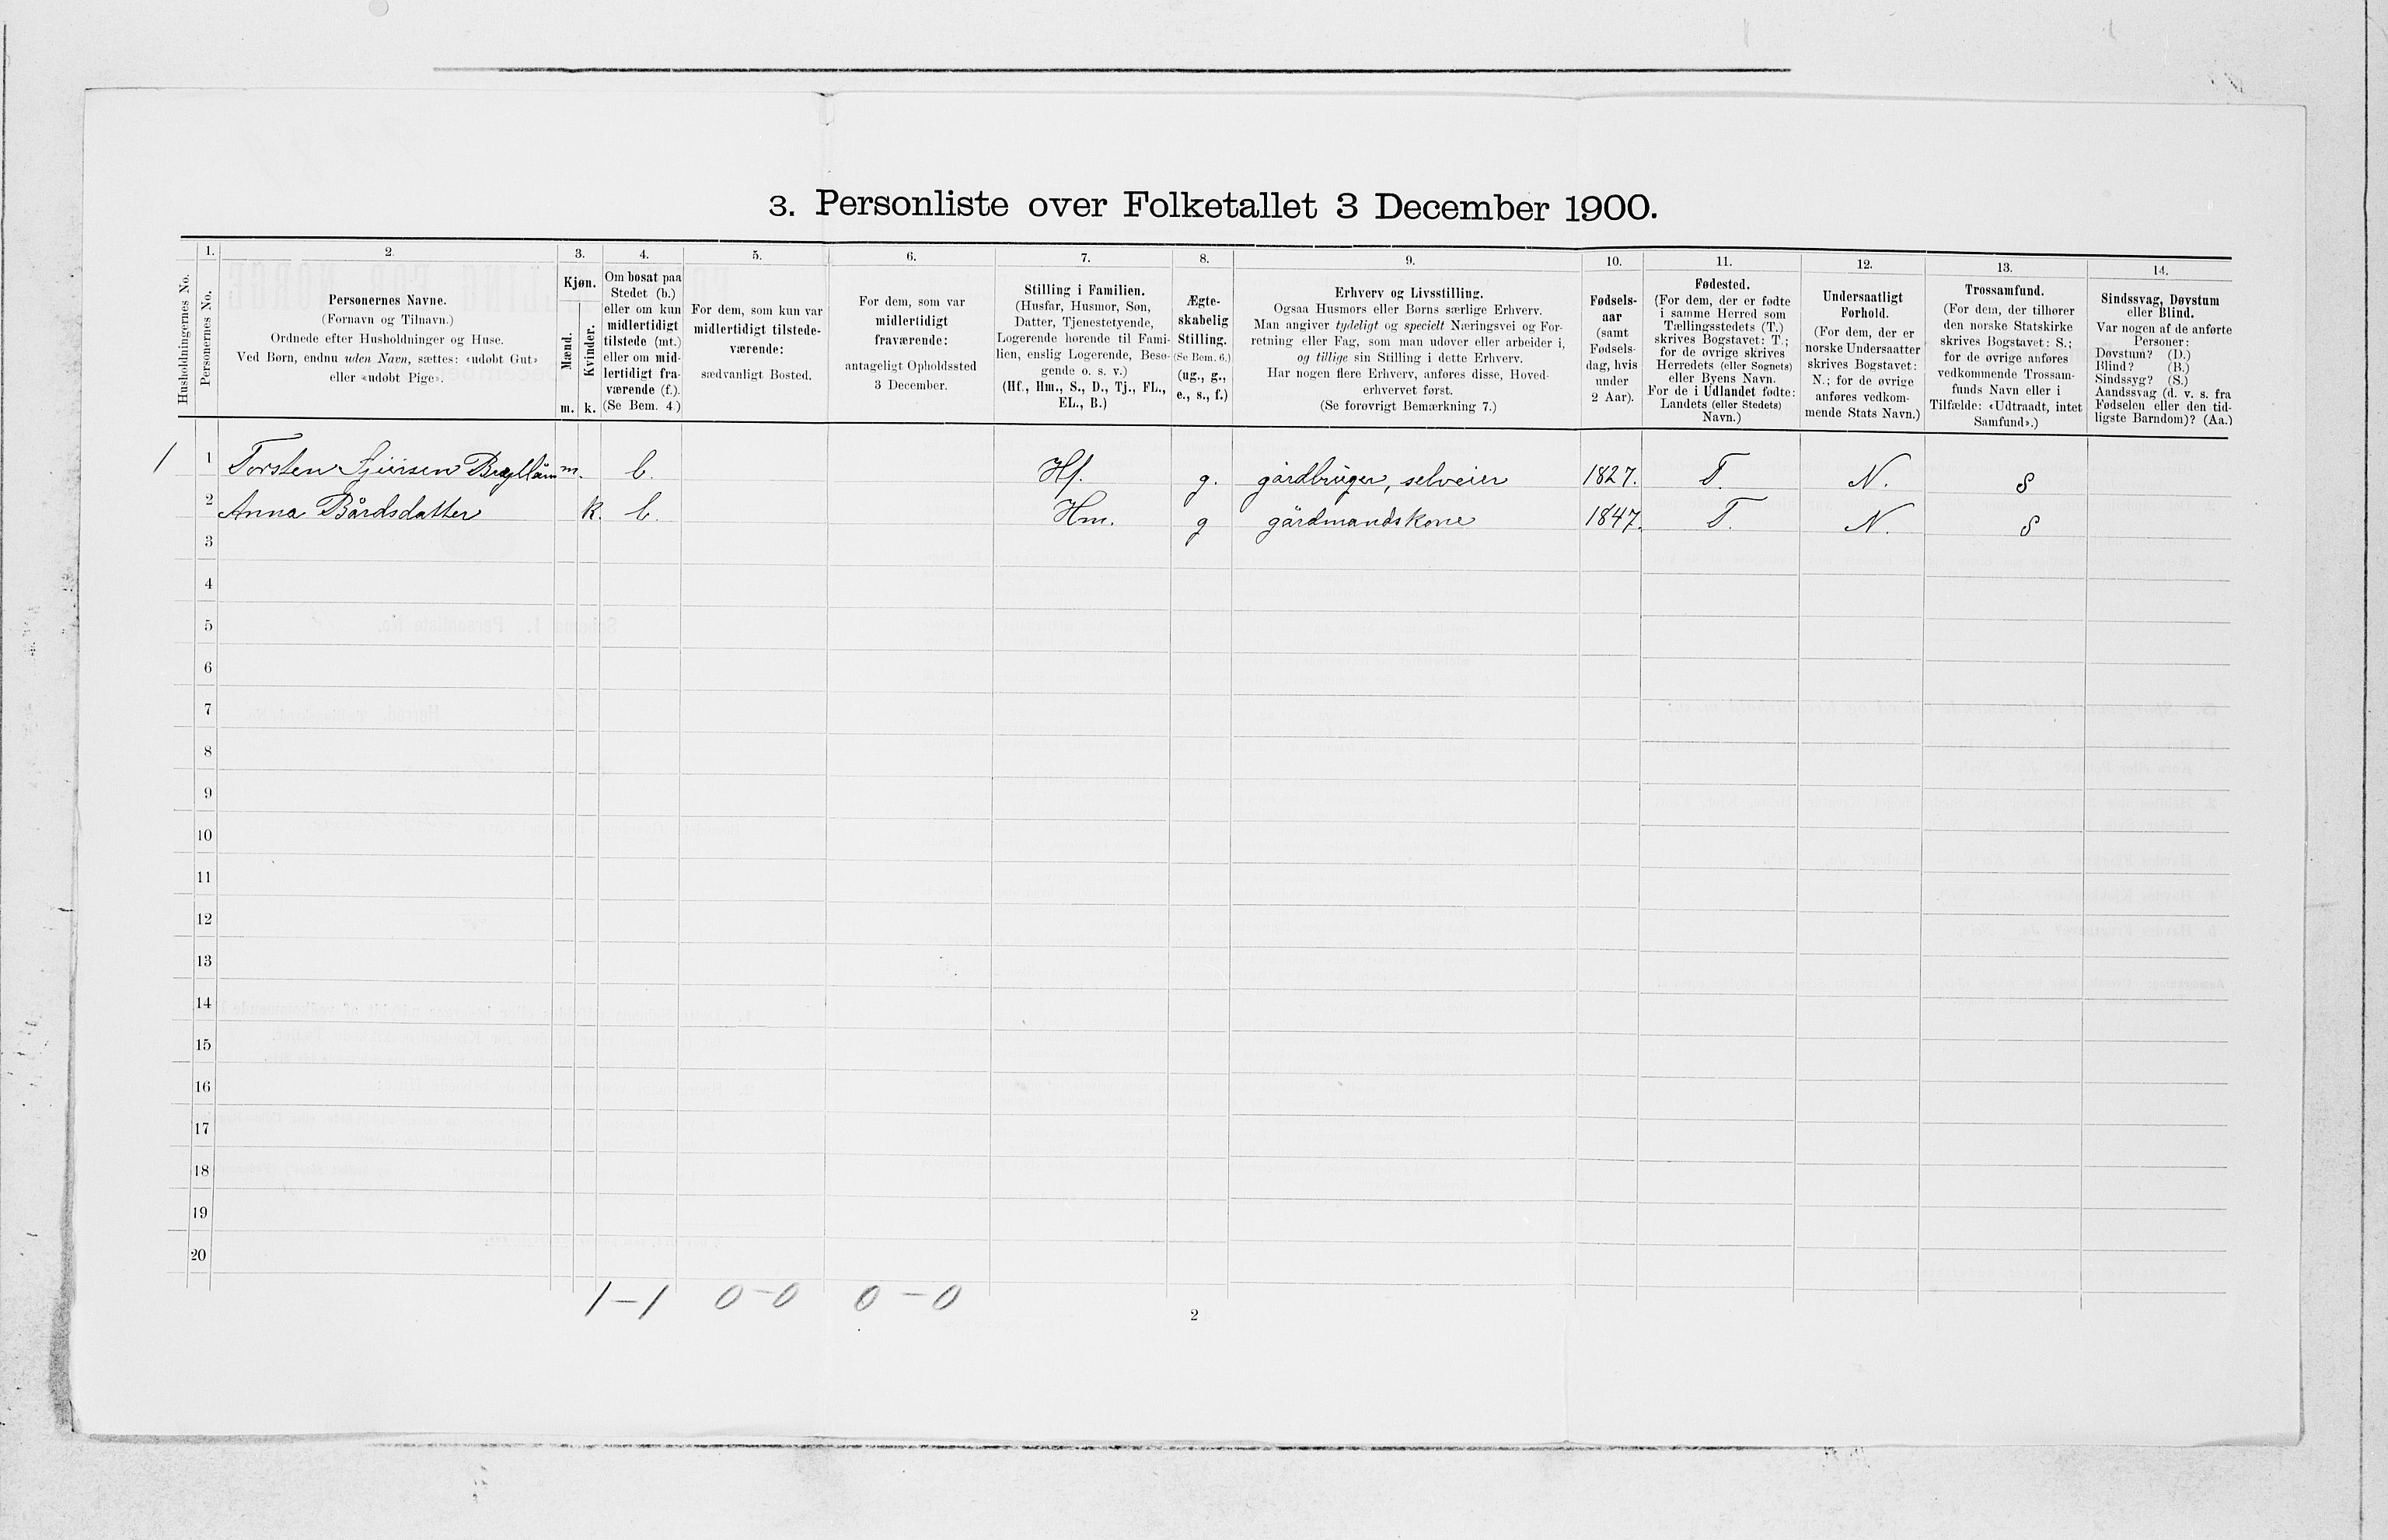 3. Personliste over Folketallet 3 December 1900.
1. 2. 3. 4. 5. 6. 7. 8. 9. 10. 11. 12. 13. 14.
Husholdningernes No.
Personernes No.
Personernes Navne.
(Fornavn og Tilnavn.)
Ordnede efter Husholdninger og Huse.
Ved Børn, endnu uden Navn, sættes: «udøbt Gut»
eller «udøbt Pige».
Kjøn.
Mænd.
Kvinder.
m. k.
Om bosat paa
Stedet (b.)
eller om kun
midlertidigt
tilstede (mt.)
eller om mid-
lertidigt fra-
værende (f.).
(Se Bem. 4.)
For dem, som kun var
midlertidigt tilstede-
værende:
sædvanligt Bosted.
For dem, som var
midlertidigt
fraværende:
antageligt Opholdssted
3 December.
Stilling i Familien.
(Husfar, Husmor, Søn,
Datter, Tjenestetyende,
Logerende hørende til Fami-
lien, enslig Logerende, Besø-
gende o. s. v.)
(Hf., Hm., S., D., Tj., FL.,
EL., B.)
Ægte-
skabelig
Stilling.
(Se Bem. 6.)
(ug., g.,
e., s., f.)
Erhverv og Livsstilling.
Ogsaa Husmors eller Børns særlige Erhverv.
Man angiver tydeligt og specielt Næringsvei og For-
retning eller Fag, som man udøver eller arbeider i,
og tillige sin Stilling i dette Erhverv.
Har nogen flere Erhverv, anføres disse, Hoved-
erhvervet først.
(Se forøvrigt Bemærkning 7.)
Fødsels-
aar
(samt
Fødsels-
dag, hvis
under
2 Aar).
Fødested.
(For dem, der er fødte
i samme Herred som
Tællingsstedets (T.)
skrives Bogstavet: T.;
for de øvrige skrives
Herredets (eller Sognets)
eller Byens Navn.
For de i Udlandet fødte:
Landets (eller Stedets)
Navn.)
Undersaatligt
Forhold.
(For dem, der er
norske Undersaatter
skrives Bogstavet:
N.; for de øvrige
anføres vedkom-
mende Stats Navn.)
Trossamfund.
(For dem, der tilhører
den norske Statskirke
skrives Bogstavet: S.;
for de øvrige anføres
vedkommende Trossam-
funds Navn eller i
Tilfælde: «Udtraadt, intet
Samfund».)
Sindssvag, Døvstum
eller Blind.
Var nogen af de anførte
Personer:
Døvstum? (D.)
Blind? (B.)
Sindssyg? (S.)
Aandssvag (d. v. s. fra
Fødselen eller den tid-
ligste Barndom)? (Aa.)
1 1 Torsten m. b. Hf. g. gårdbruger, selveier 1827. T. N. S
2 Anna Bårdsdatter k. b. Hm. g gårdmandskone 1847. T. N. S
3
4
5
6
7
8
9
10
11
12
13
14
15
16
17
18
19
20
1–1 0–0 0–0
2